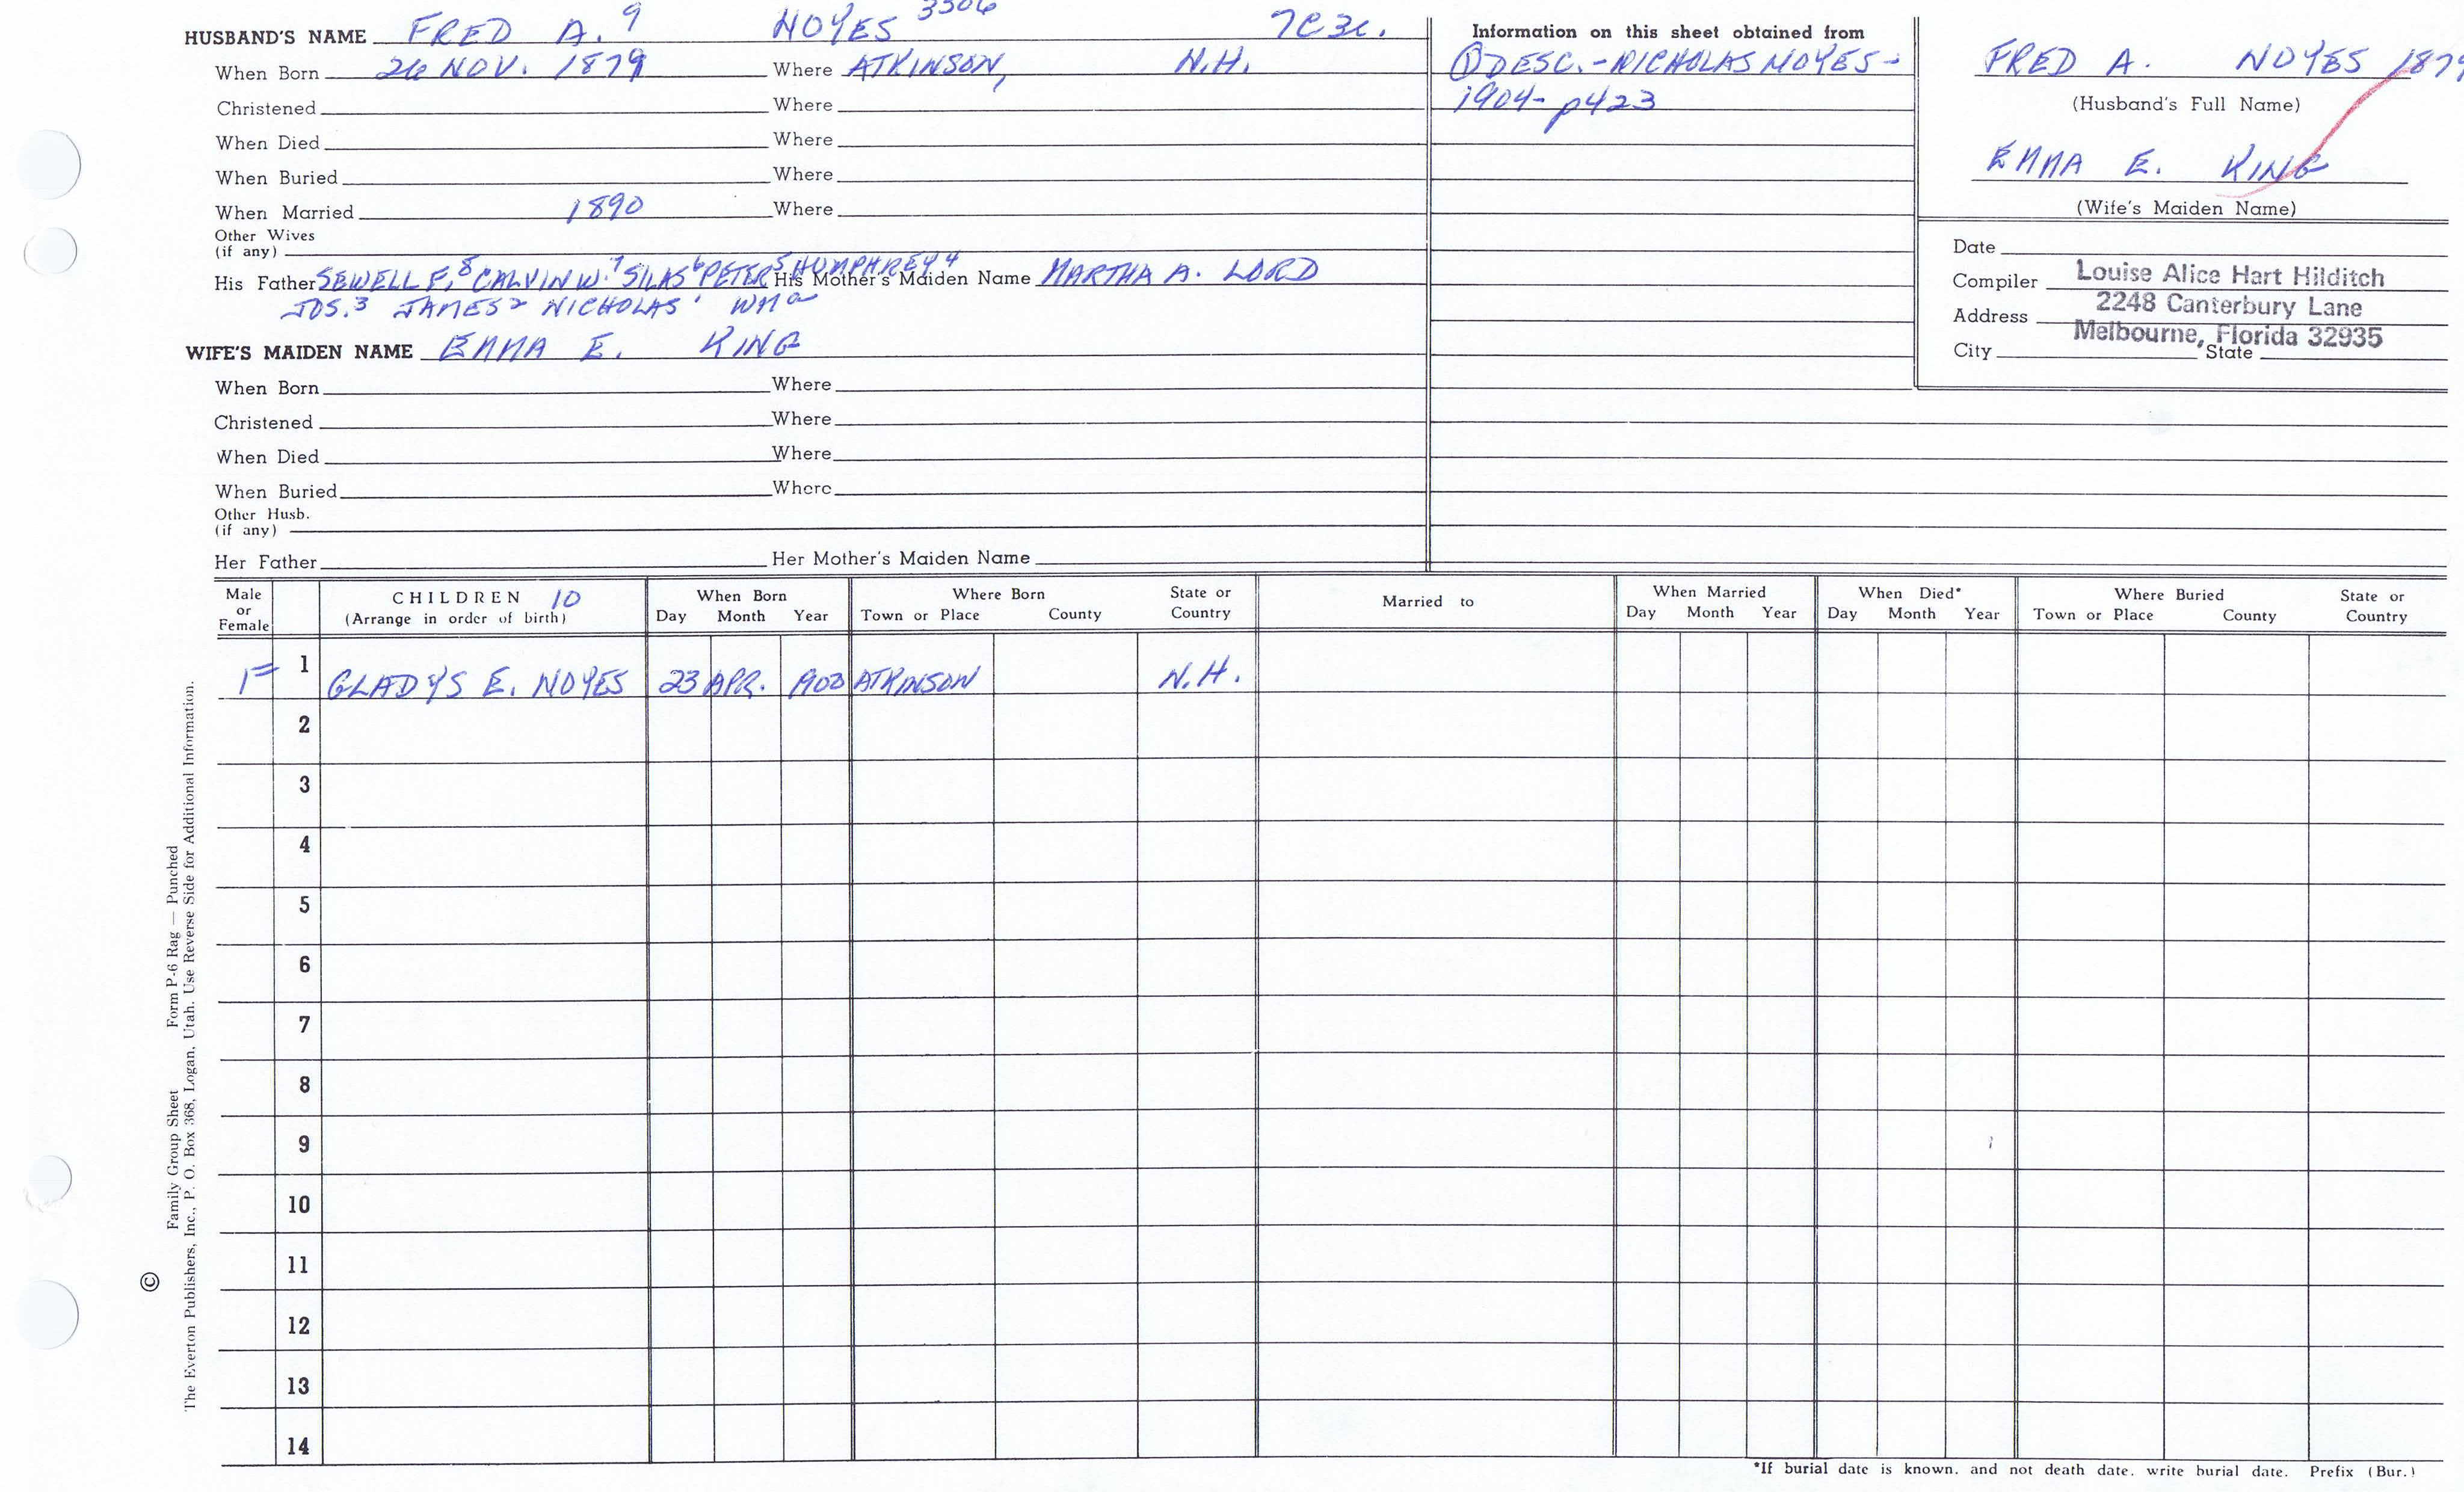 HUSBAND'S NAME FRED A. 9 NOYES 3306 7C3C.
When Born 26 NOV. 1879 Where ATKINSON, N.H.
Christened Where
When Died Where
When Buried Where
When Married 1890 Where
Other Wives
(if any)
His Father SEWELL F. 8 CALVIN W. 7 SILAS 6 PETER 5 HUMPHREY 4 His Mother's Maiden Name MARTHA A. LORD
JOS. 3 JAMES 2 NICHOLAS 1 WM a
WIFE'S MAIDEN NAME EMMA E. KING
When Born Where
Christened Where
When Died Where
When Buried Where
Other Husb.
(if any)
Her Father Her Mother's Maiden Name
Information on this sheet obtained from
① DESC. - NICHOLAS NOYES -
1904 - p423
FRED A. NOYES 1879
(Husband's Full Name)
EMMA E. KING
(Wife's Maiden Name)
Date
Compiler Louise Alice Hart Hilditch
Address 2248 Canterbury Lane
Melbourne, Florida 32935
City State
Male or Female CHILDREN 10 (Arrange in order of birth) When Born Day Month Year Where Born Town or Place County State or Country Married to When Married Day Month Year When Died* Day Month Year Where Buried Town or Place County State or Country
F 1 GLADYS E. NOYES 23 APR. 1903 ATKINSON N.H.
2
3
4
5
6
7
8
9
10
11
12
13
14
*If burial date is known, and not death date, write burial date. Prefix (Bur.)
© Family Group Sheet Form P-6 Rag — Punched
The Everton Publishers, Inc., P. O. Box 368, Logan, Utah. Use Reverse Side for Additional Information.